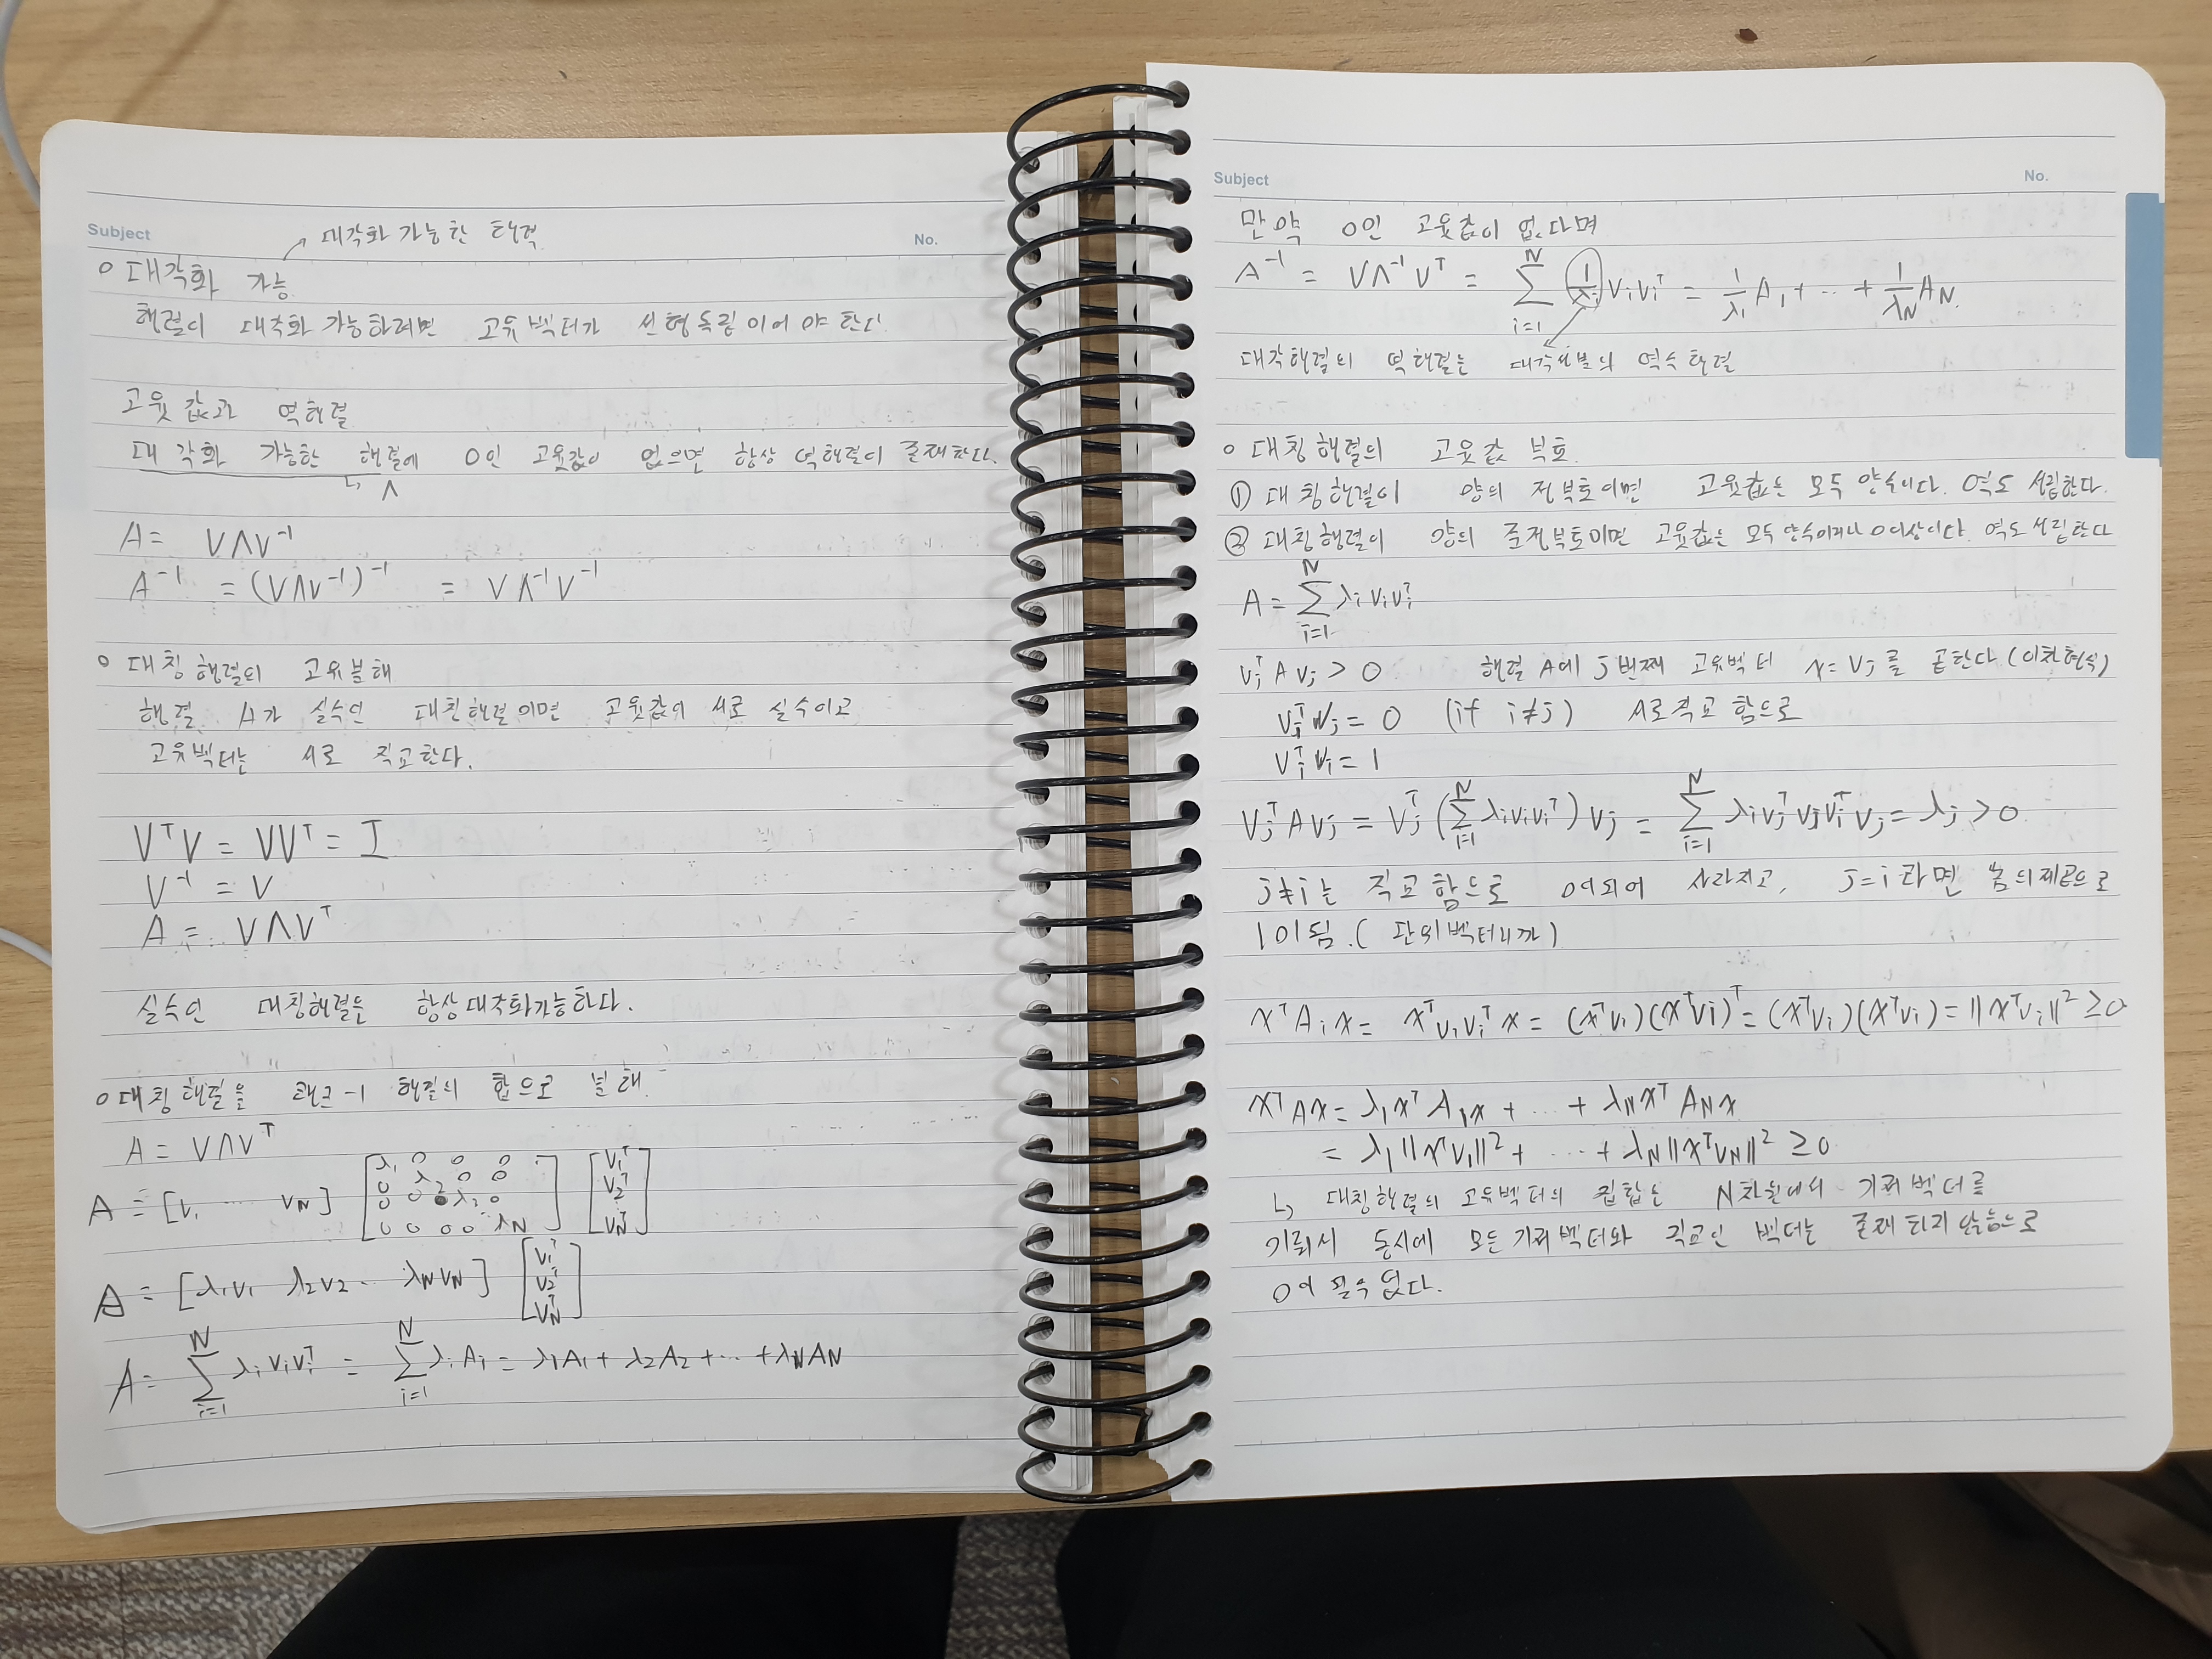 Subject
No.
대각화 가능한 행렬
○ 대각화 가능
행렬이 대각화 가능하려면 고유벡터가 선형독립이어야 한다
고윳값과 역행렬
대각화 가능한 행렬에 0인 고윳값이 없으면 항상 역행렬이 존재한다.
↳ Λ
A = VΛV⁻¹
A⁻¹ = (VΛV⁻¹)⁻¹ = VΛ⁻¹V⁻¹
○ 대칭행렬의 고유분해
행렬 A가 실수인 대칭행렬이면 고윳값이 서로 실수이고
고유벡터는 서로 직교한다.
VᵀV = VVᵀ = I
V⁻¹ = V
A = VΛVᵀ
실수인 대칭행렬은 항상 대각화가능하다.
○ 대칭행렬을 랭크-1 행렬의 합으로 분해
A = VΛVᵀ
A = [v₁ ··· vN] [λ₁ 0 0 0 0 λ₂ 0 0 0 0 λ₃ 0 0 0 0 0 λN] [v₁ᵀ v₂ᵀ vNᵀ]
A = [λ₁v₁ λ₂v₂ ·· λNvN] [v₁ᵀ v₂ᵀ vNᵀ]
A = Σᵢ₌₁ᴺ λᵢvᵢvᵢᵀ = Σᵢ₌₁ᴺ λᵢAᵢ = λ₁A₁ + λ₂A₂ + ··· + λNAN
Subject
No.
만약 0인 고윳값이 없다면
A⁻¹ = VΛ⁻¹Vᵀ = Σᵢ₌₁ᴺ 1/λᵢ vᵢvᵢᵀ = 1/λ₁ A₁ + ··· + 1/λN AN.
대각행렬의 역행렬는 대각성분의 역수 행렬
○ 대칭행렬의 고윳값 부호.
① 대칭행렬이 양의 정부호이면 고윳값은 모두 양수이다. 역도 성립한다.
② 대칭행렬이 양의 준정부호이면 고윳값은 모두 양수이거나 0이상이다. 역도 성립한다
A = Σᵢ₌₁ᴺ λᵢvᵢvᵢᵀ
vⱼᵀAvⱼ > 0 행렬 A에 j번째 고유벡터 x = vⱼ를 곱한다 (이차형식)
vᵢᵀvⱼ = 0 (if i≠j) 서로직교 함으로
vᵢᵀvᵢ = 1
vⱼᵀAvⱼ = vⱼᵀ(Σᵢ₌₁ᴺ λᵢvᵢvᵢᵀ)vⱼ = Σᵢ₌₁ᴺ λᵢvⱼᵀvⱼvᵢᵀvⱼ = λⱼ > 0
j≠i는 직교함으로 0이되어 사라지고, j=i라면 놈의제곱으로
1이됨. (단위벡터니까)
xᵀAᵢx = xᵀvᵢvᵢᵀx = (xᵀvᵢ)(xᵀvᵢ)ᵀ = (xᵀvᵢ)(xᵀvᵢ) = ‖xᵀvᵢ‖² ≥ 0
xᵀAx = λ₁xᵀA₁x + ··· + λNxᵀANx
= λ₁‖xᵀv₁‖² + ··· + λN‖xᵀvN‖² ≥ 0
↳ 대칭행렬의 고유벡터의 집합은 N차원에서 기저벡터를
기뤄서 동시에 모든기저벡터와 직교인 벡터는 존재 되지 않음으로
0이 될수 없다.